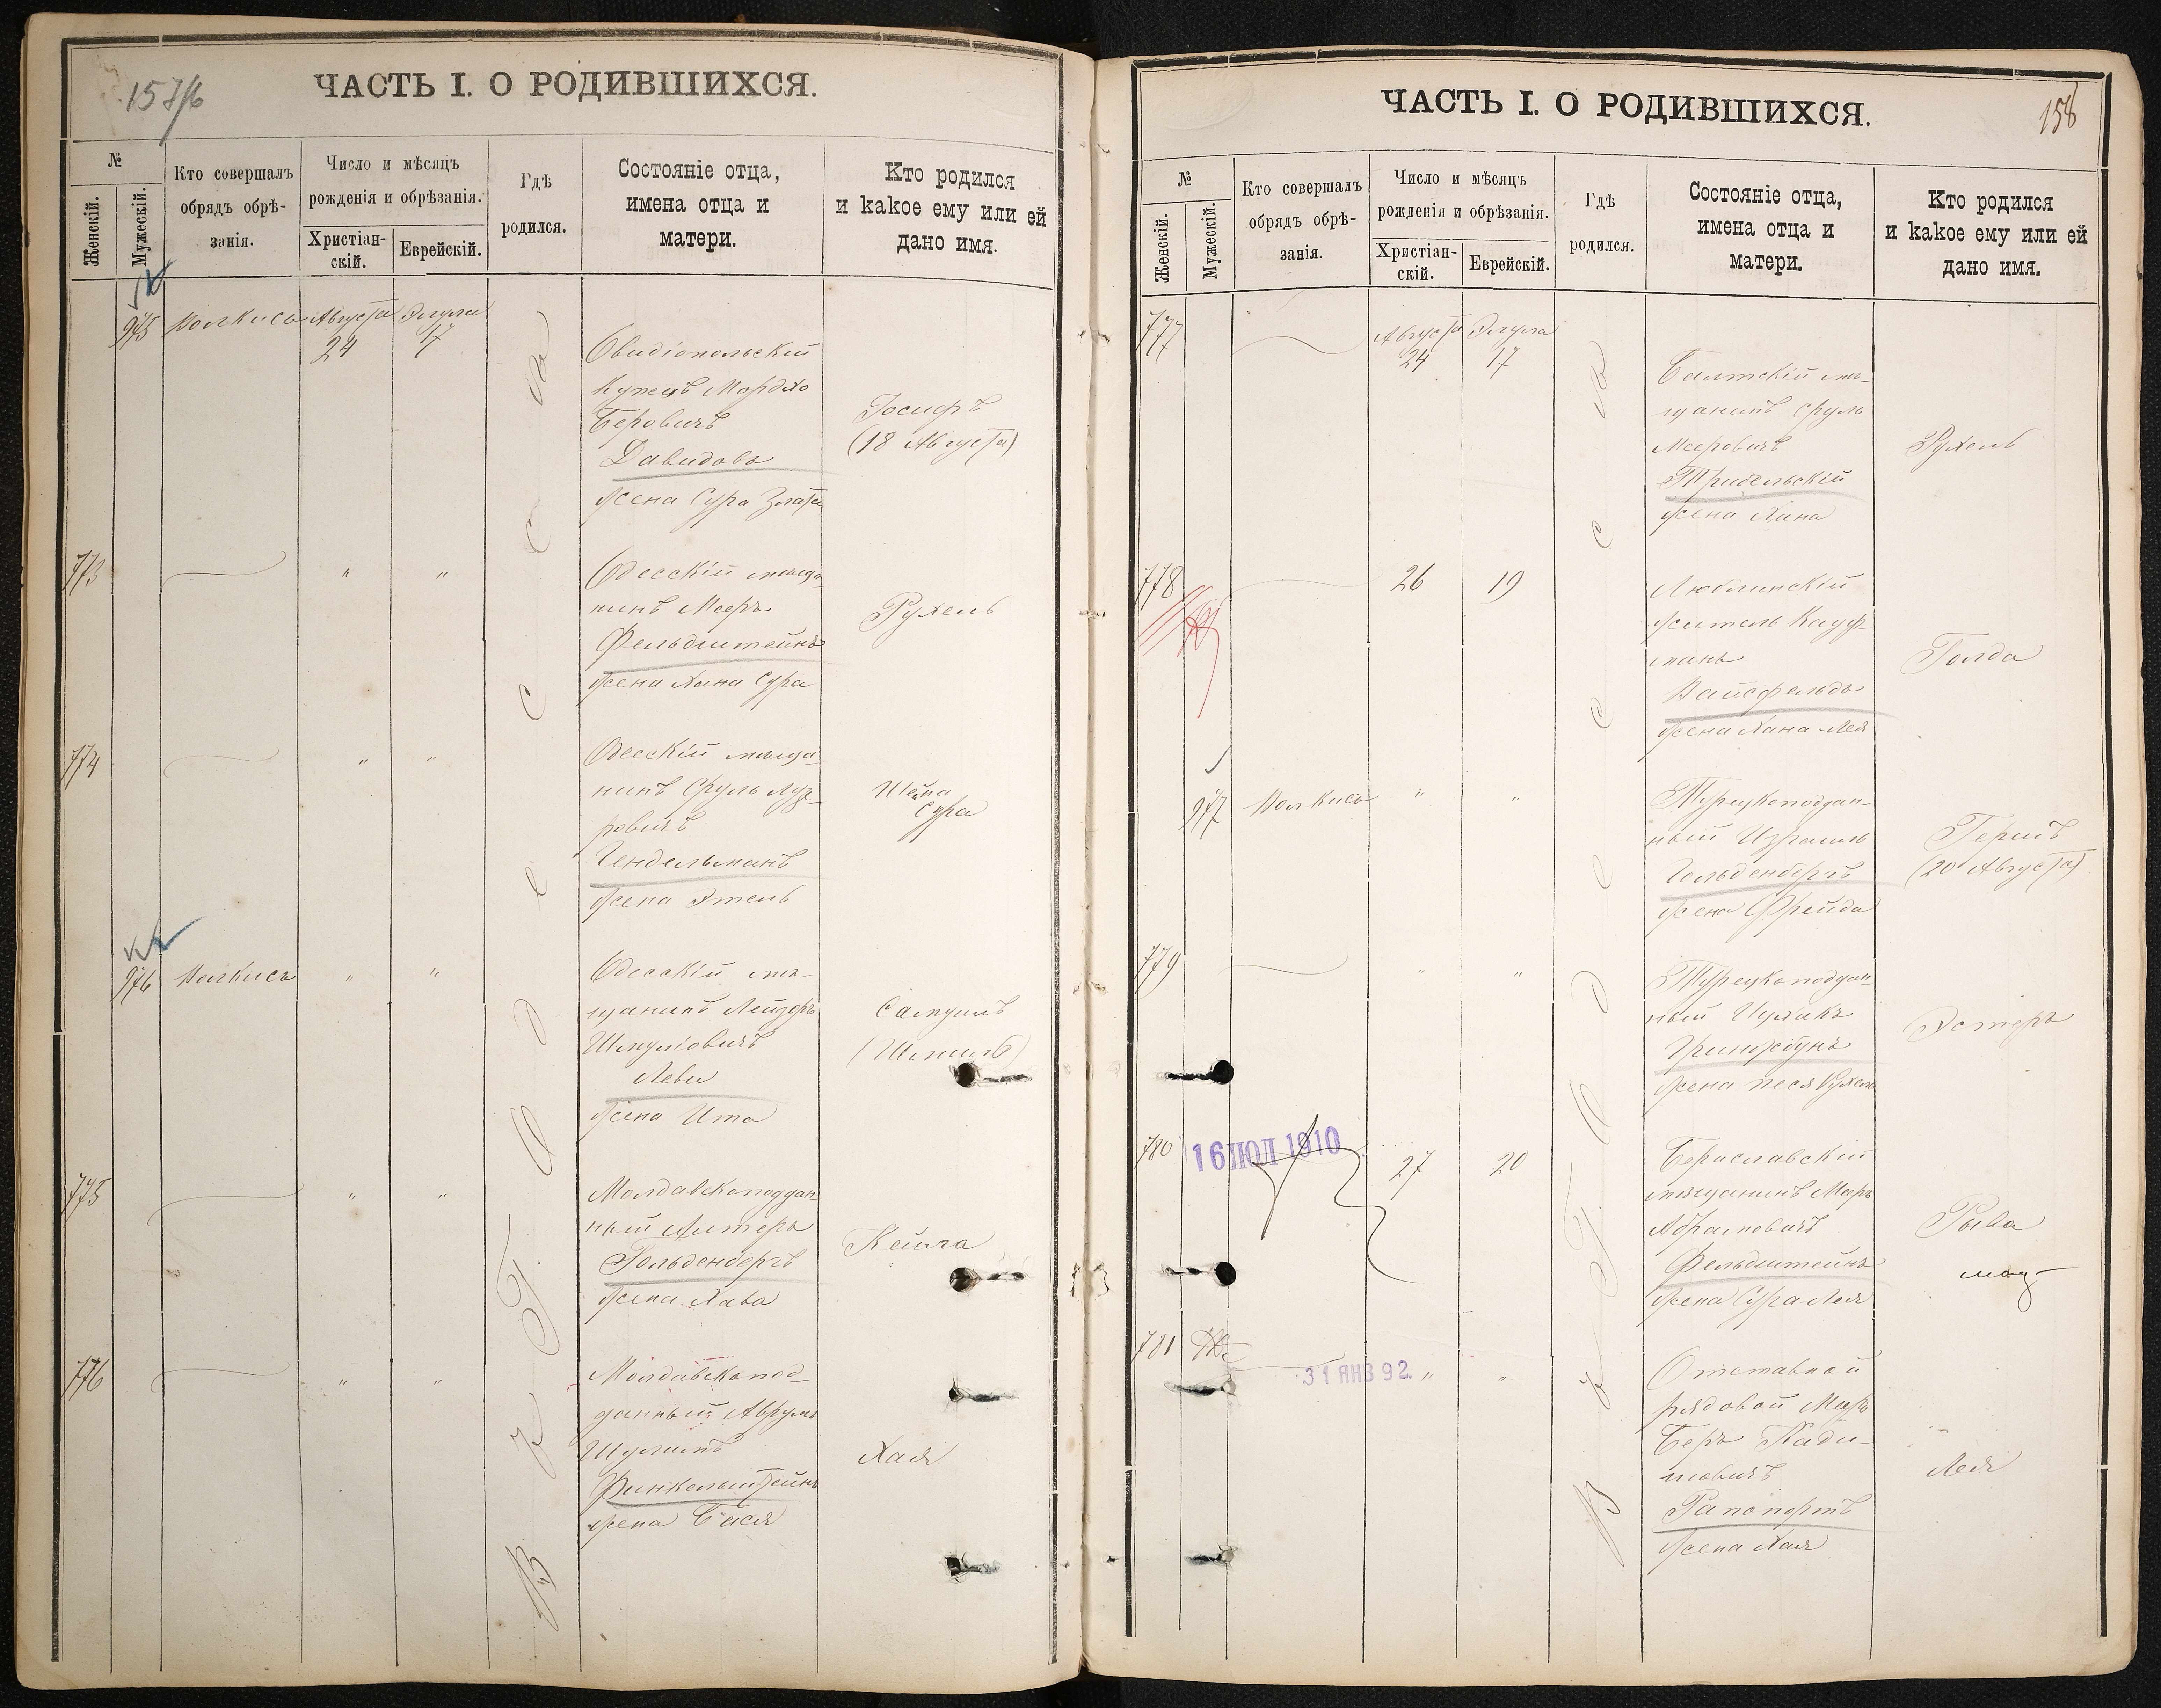 157/б
ЧАСТЬ I. О РОДИВШИХСЯ.
№
Женскій.
Мужескій.
Кто совершалъ
обрядъ обрѣ-
занія.
Число и мѣсяцъ
рожденія и обрѣзанія.
Христіан-
скій.
Еврейскій.
Гдѣ
родился.
Состояніе отца,
имена отца и
матери.
Кто родился
и какое ему или ей
дано имя.
Въ г. Одесса
975 Волкисъ Августа Элула
24 17
Овидіопольскій
Купецъ Мордко
Беровичъ
Давидовъ
жена Сура Злата
Іосифъ
(18 Августа)
773 " "
Одесскій мѣща-
нинъ Мееръ
Фельдштейнъ
жена Хана Сура
Рухель
774 " "
Одесскій мѣща-
нинъ Сруль Лузе-
ровичъ
Гендельманъ
жена Этель
Шейна
Сура
976 Волкисъ " "
Одесскій мѣ-
щанинъ Лейзеръ
Шмулiовичъ
Леви
жена Ита
Самуилъ
(Шмиль)
775 " "
Молдавскоподдан-
ный Алтеръ
Гольденбергъ
жена Хава
Кейла
776 " "
Молдавскопод-
данный Аврумъ
Шулимъ
Финкельштейнъ
жена Бася
Хая
158
ЧАСТЬ I. О РОДИВШИХСЯ.
№
Женскій.
Мужескій.
Кто совершалъ
обрядъ обрѣ-
занія.
Число и мѣсяцъ
рожденія и обрѣзанія.
Христіан-
скій.
Еврейскій.
Гдѣ
родился.
Состояніе отца,
имена отца и
матери.
Кто родился
и какое ему или ей
дано имя.
Въ г. Одесса
777 Августа Элула
24 17
Балтскій мѣ-
щанинъ Сруль
Мееровичъ
жена Хана
Рухель
778 26 19
Люблинскій
житель Кауф-
манъ
Вайсфельдъ
жена Хана Лея
Голда
977 Волкисъ " "
Турецкоподдан-
ный Израиль
Гольденбергъ
жена Фрейда
Гершъ
(20 Августа)
779 " "
Турецкоподдан-
ный Ицхакъ
жена Песя Рухель
Эстеръ
780 16 ІЮЛ 1910 27 20
Бериславскій
мѣщанинъ Мееръ
Абрамовичъ
Фельдштейнъ
жена Сура Лея
Рыва
781 31 ЯНВ 92. " "
Отставной
рядовой Мееръ
Беръ Кади-
шовичъ
Рапопортъ
жена Хая
Лея